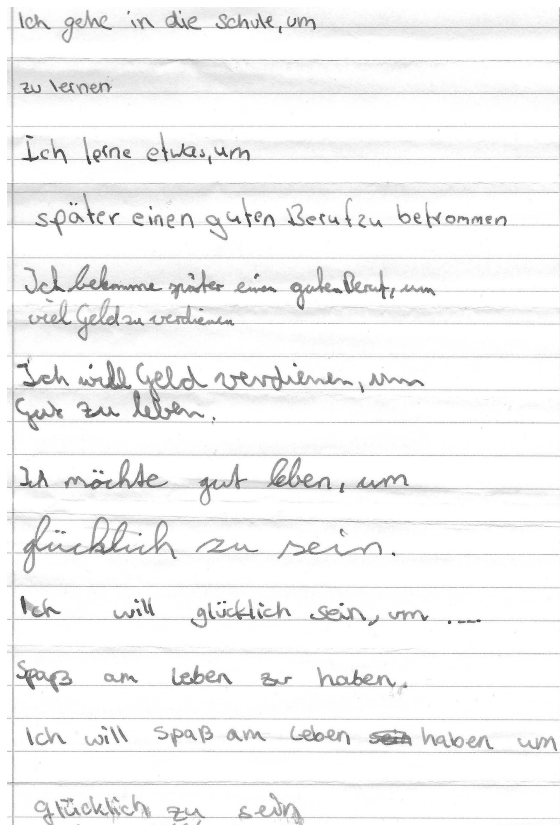 Ich gehe in die Schule, um
zu lernen
Ich lerne etwas, um
später einen guten Beruf zu bekommen
Ich bekomme später einen guten Beruf, um
viel Geld zu verdienen
Ich will Geld verdienen, um
Gut zu leben.
Ich möchte gut leben, um
glücklich zu sein.
Ich will glücklich sein, um ....
Spaß am Leben zu haben.
Ich will Spaß am Leben haben um
glücklich zu sein